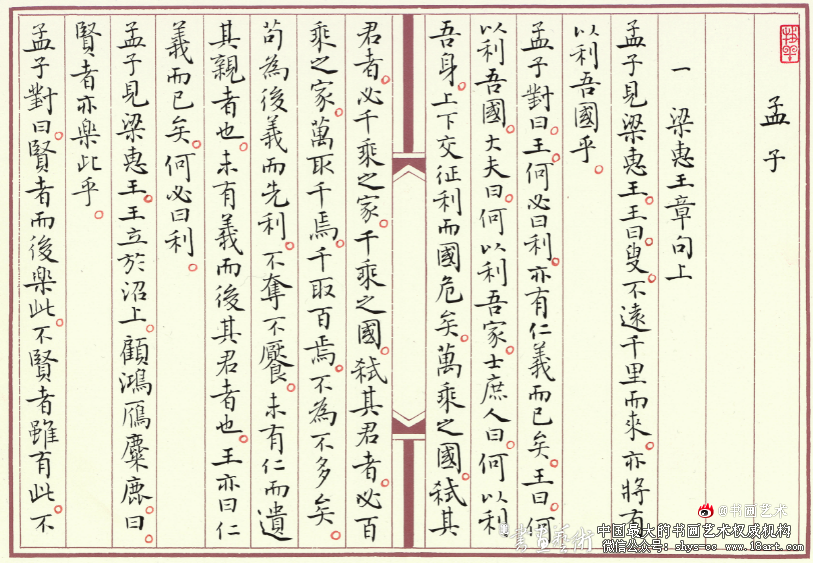 孟子
一 梁惠王章句上
孟子見梁惠王。王曰。叟。不遠千里而來。亦將有
以利吾國乎。
孟子對曰。王何必曰利。亦有仁義而已矣。王曰。何
以利吾國。大夫曰。何以利吾家。士庶人曰。何以利
吾身。上下交征利而國危矣。萬乘之國。弒其
君者。必千乘之家。千乘之國。弒其君者。必百
乘之家。萬取千焉。千取百焉。不為不多矣。
苟為後義而先利。不奪不饜。未有仁而遺
其親者也。未有義而後其君者也。王亦曰仁
義而已矣。何必曰利。
孟子見梁惠王。王立於沼上。顧鴻鴈麋鹿。曰。
賢者亦樂此乎。
孟子對曰。賢者而後樂此。不賢者雖有此。不
@书画艺术
書畫藝術
中国最大的书画艺术权威机构
微信公众号：shys-cc www.18art.com